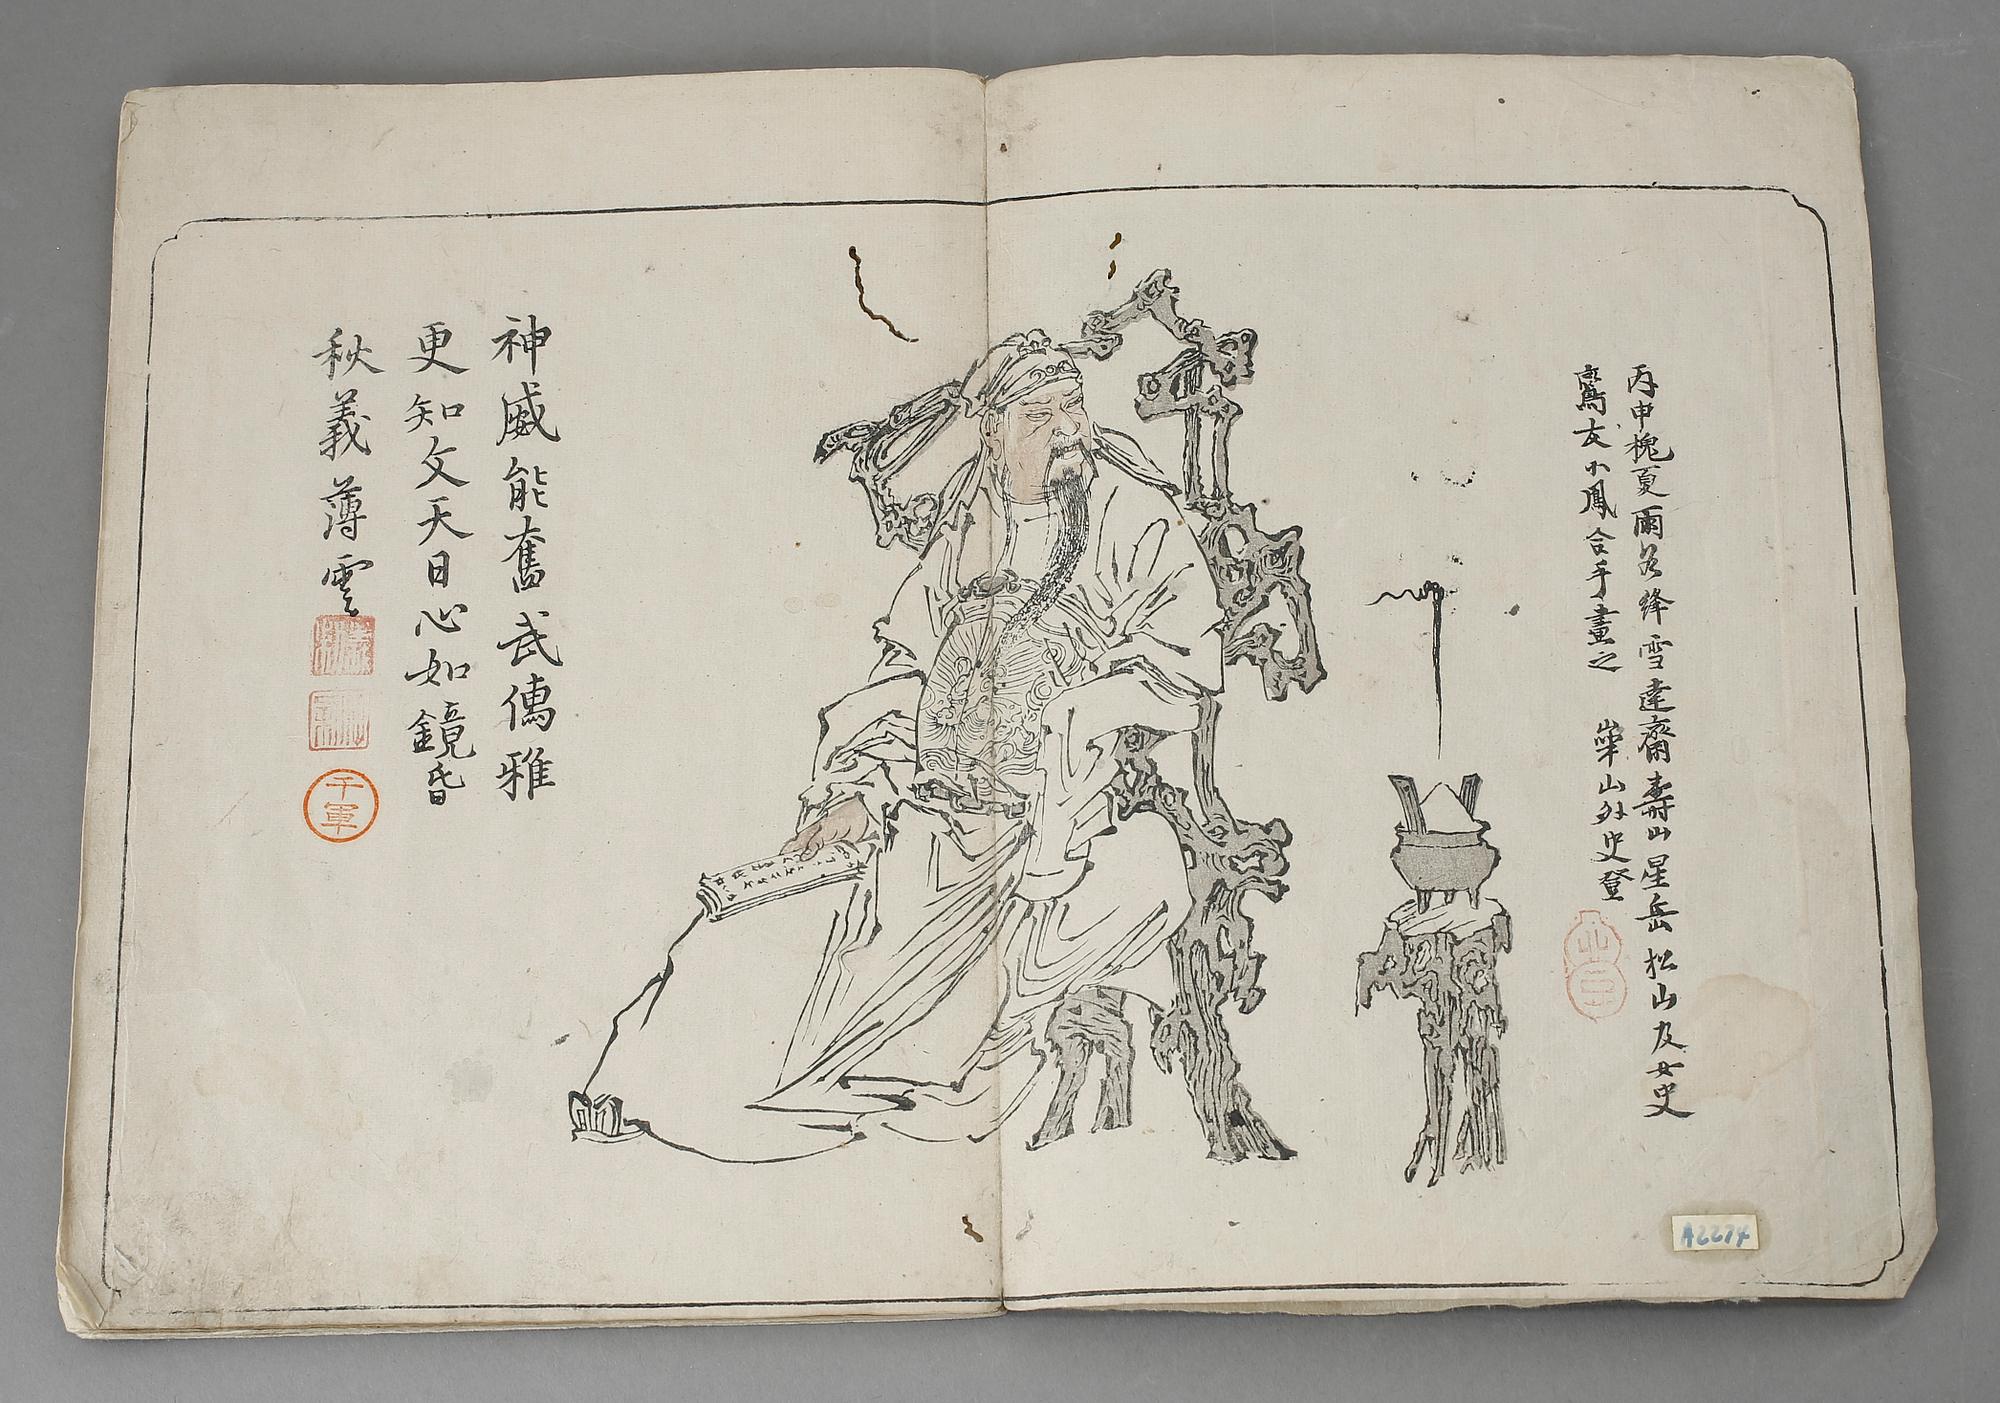 丙申槐夏雨谷絳雪達齋壽山星岳松山及女史
友小鳳合手畫之　崋山外史登
神威能奮武儒雅
更知文天日心如鏡旾
秋義薄雲
千軍
A2274